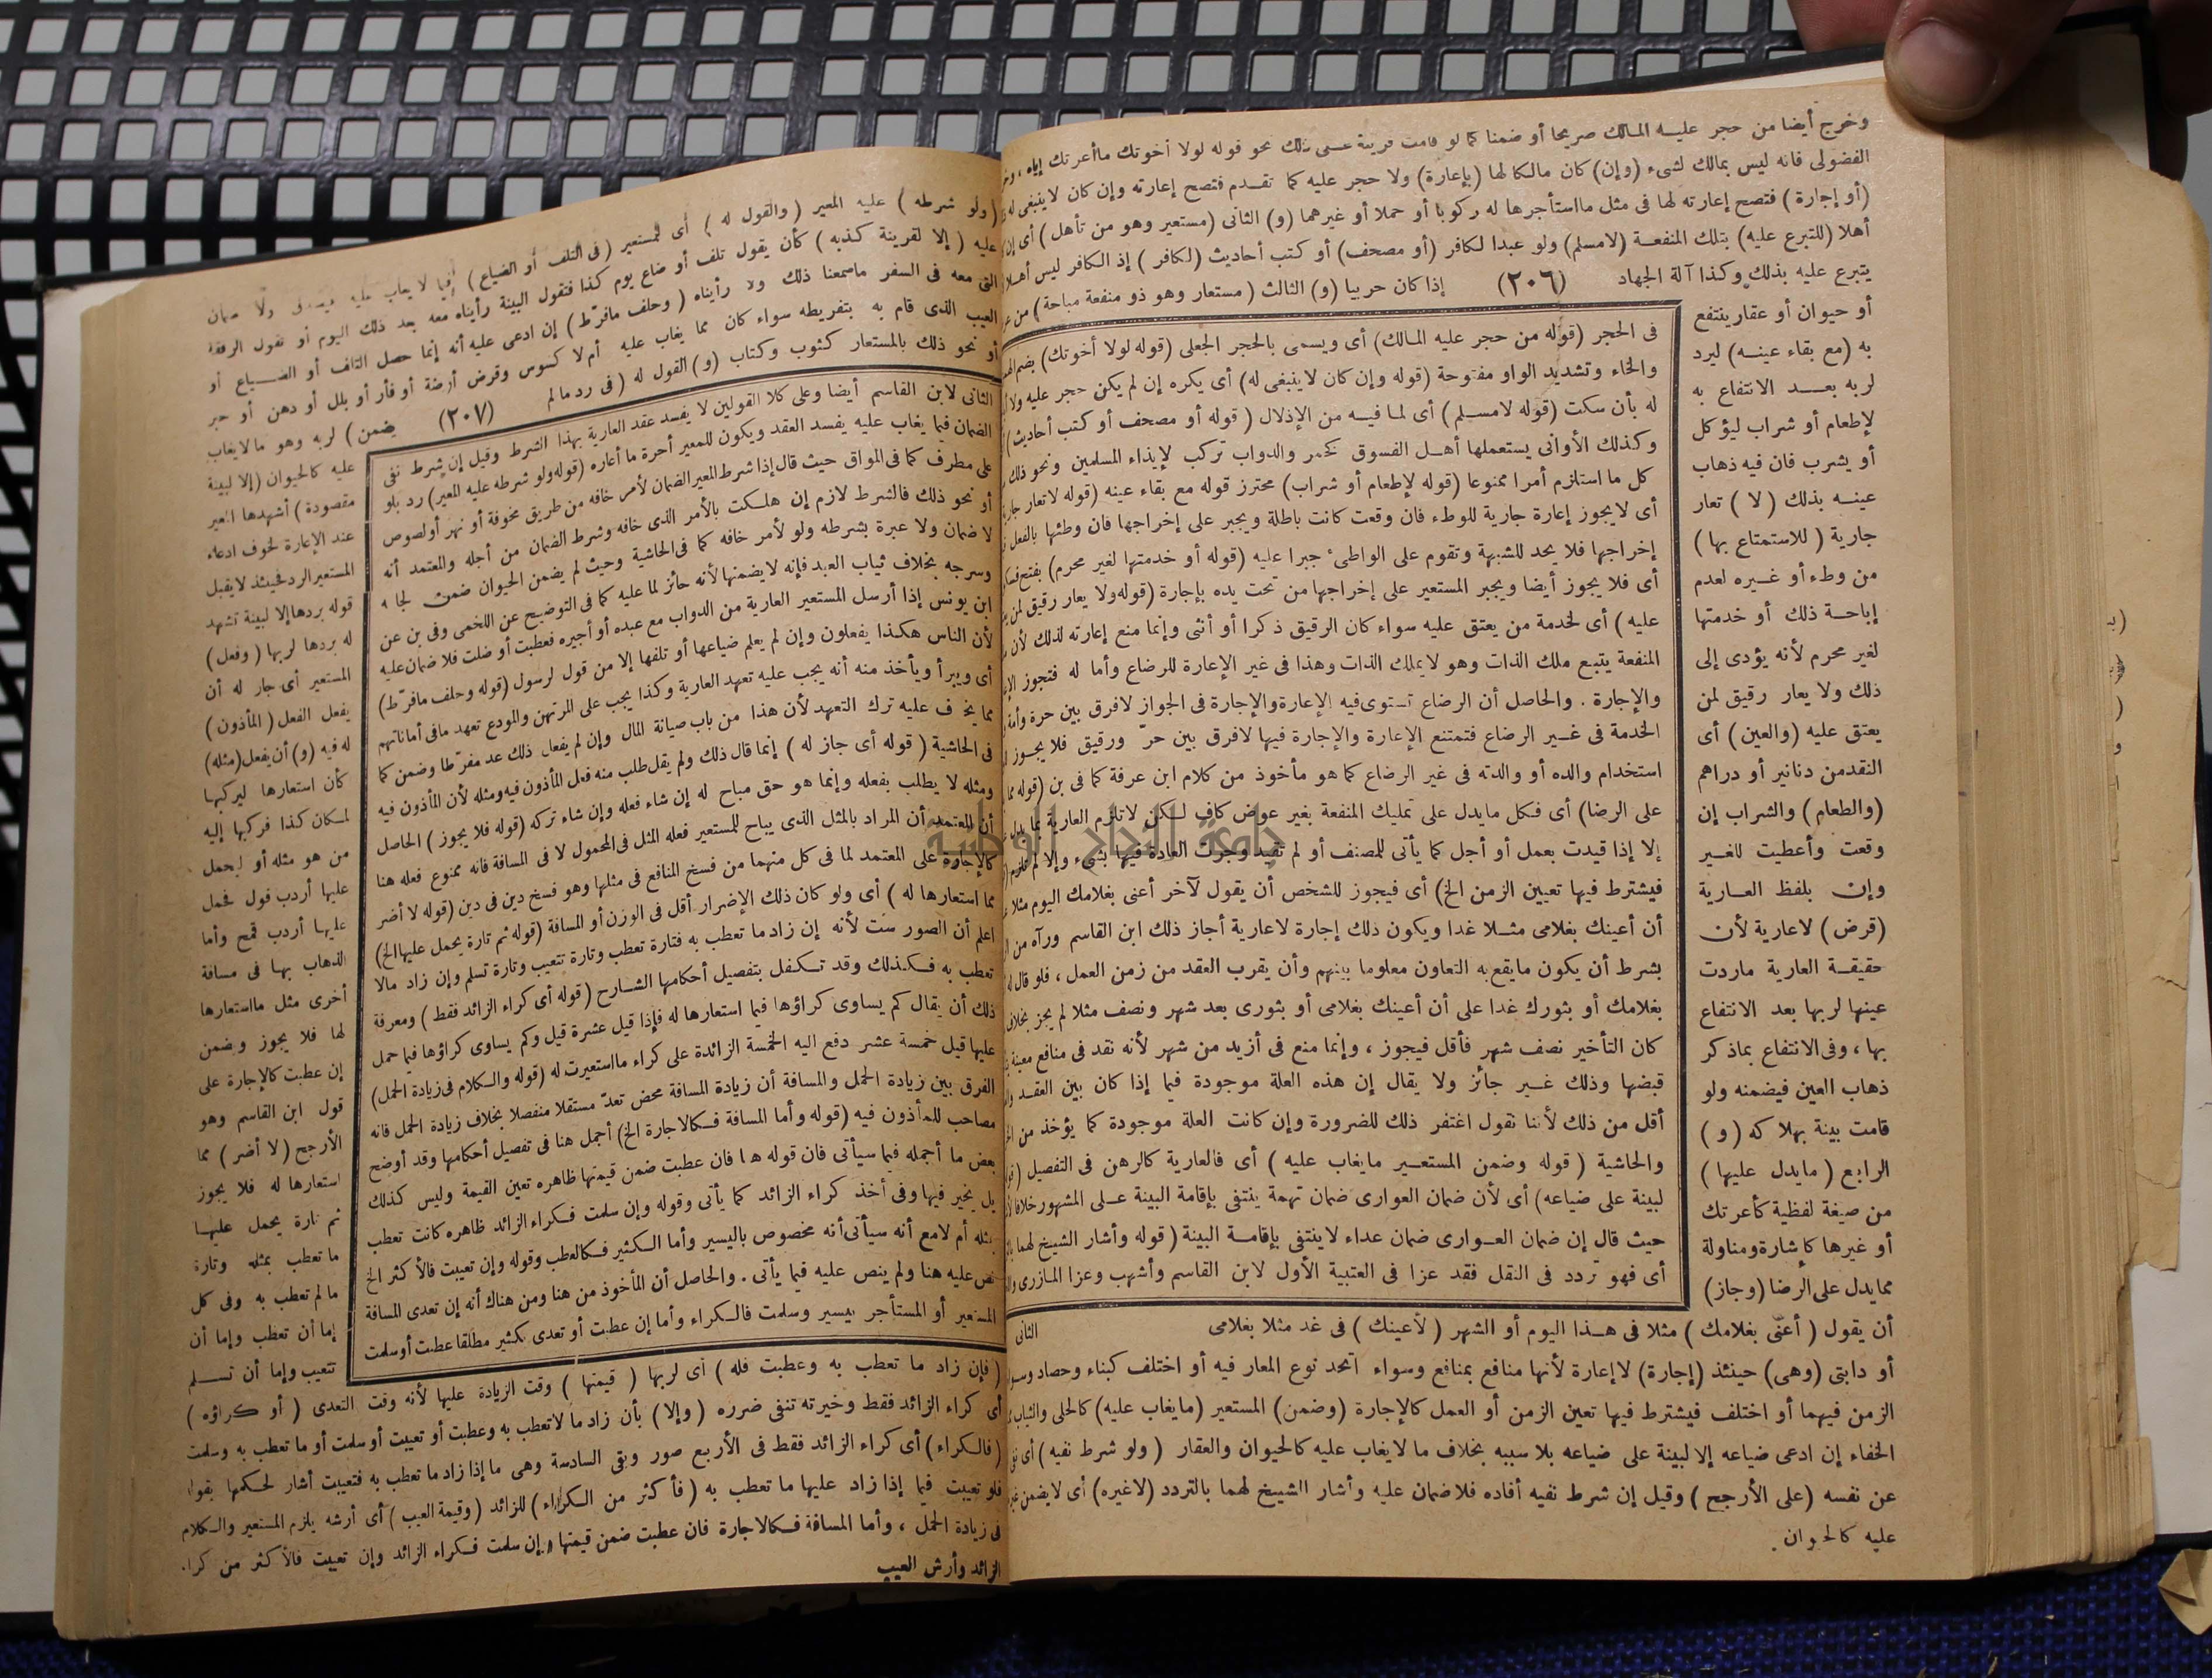 وخرج أيضا من حجر عليه المالك صريحا أو ضمنا كما لو قامت قرينة على ذلك نحو قوله لولا أخوتك ماأعرتك إياه ،
الفضولى فانه ليس بمالك لشىء (وإن) كان مالكا لها (بإعارة) ولا حجر عليه كما تقدم فتصح إعارته وإن كان لاينبغى له
(أو إجارة) فتصح إعارته لها فى مثل مااستأجرها له ركوبا أو حملا أو غيرهما (و) الثانى (مستعير وهو من تأهل) أى
أهلا (للتبرع عليه) بتلك المنفعة (لامسلم) ولو عبدا لكافر (أو مصحف) أو كتب أحاديث (لكافر) إذ الكافر ليس
يتبرع عليه بذلك وكذا آلة الجهاد (٢٠٦) إذا كان حربيا (و) الثالث (مستعار وهو ذو منفعة مباحة) من
أو حيوان أو عقار ينتفع
به (مع بقاء عينه) ليرد
لربه بعد الانتفاع به
لإطعام أو شراب ليؤكل
أو يشرب فان فيه ذهاب
عينه بذلك (لا) تعار
جارية (للاستمتاع بها)
من وطء أو غيره لعدم
إباحة ذلك أو خدمتها
لغير محرم لأنه يؤدى إلى
ذلك ولا يعار رقيق لمن
يعتق عليه (والعين) أى
النقد من دنانير أو دراهم
(والطعام) والشراب إن
وقعت وأعطيت للغير
وإن بلفظ العارية
(قرض) لاعارية لأن
حقيقة العارية ماردت
عينها لربها بعد الانتفاع
بها ، وفى الانتفاع بماذكر
ذهاب العين فيضمنه ولو
قامت بينة بهلاكه (و)
الرابع (مايدل عليها)
من صيغة لفظية كأعرتك
أو غيرها كإشارة ومناولة
مما يدل على الرضا (وجاز)
أن يقول (أعنّى بغلامك) مثلا فى هذا اليوم أو الشهر (لأعينك) فى غد مثلا بغلامى
أو دابتى (وهى) حينئذ (إجارة) لاإعارة لأنها منافع بمنافع وسواء اتحد نوع المعار فيه أو اختلف كبناء وحصاد
الزمن فيهما أو اختلف فيشترط فيها تعين الزمن أو العمل كالإجارة (وضمن) المستعير (مايغاب عليه) كالحلى والثياب
الخفاء إن ادعى ضياعه إلا لبينة على ضياعه بلا سببه بخلاف ما لايغاب عليه كالحيوان والعقار (ولو شرط نفيه) أى
عن نفسه (على الأرجح) وقيل إن شرط نفيه أفاده فلا ضمان عليه وأشار الشيخ لهما بالتردد (لاغيره) أى لايضمن
عليه كالحيوان .
فى الحجر (قوله من حجر عليه المالك) أى ويسمى بالحجر الجعلى (قوله لولا أخوتك) بضم
والخاء وتشديد الواو مفتوحة (قوله وإن كان لاينبغى له) أى يكره إن لم يكن حجر عليه
له بأن سكت (قوله لامسلم) أى لما فيه من الإذلال (قوله أو مصحف أو كتب أحاديث)
وكذلك الأوانى يستعملها أهل الفسوق كخمر والدواب تركب لإيذاء المسلمين ونحو ذلك
كل ما استلزم أمرا ممنوعا (قوله لإطعام أو شراب) محترز قوله مع بقاء عينه (قوله لاتعار
أى لايجوز إعارة جارية للوطء فان وقعت كانت باطلة ويجبر على إخراجها فان وطئها بالفعل
إخراجها فلا يحد للشبهة وتقوم على الواطئ جبرا عليه (قوله أو خدمتها لغير محرم)
أى فلا يجوز أيضا ويجبر المستعير على إخراجها من تحت يده بإجارة (قوله ولا يعار رقيق
عليه) أى لخدمة من يعتق عليه سواء كان الرقيق ذكرا أو أنثى وإنما منع إعارته لذلك لأن
المنفعة يتبع ملك الذات وهو لايملك الذات وهذا فى غير الإعارة للرضاع وأما له فتجوز
والإجارة . والحاصل أن الرضاع تستوى فيه الإعارة والإجارة فى الجواز لافرق بين حرة
الخدمة فى غير الرضاع فتمتنع الإعارة والإجارة فيها لافرق بين حرّ ورقيق فلا يجوز
استخدام والده أو والدته فى غير الرضاع كما هو مأخوذ من كلام ابن عرفة كما فى بن (قوله
على الرضا) أى فكل مايدل على تمليك المنفعة بغير عوض كاف لكن لاتلزم العارية
إلا إذا قيدت بعمل أو أجل كما يأتى للمصنف أو لم تقيد وجرت العادة فيها بشىء وإلا لم تلزم
فيشترط فيها تعيين الزمن الخ) أى فيجوز للشخص أن يقول لآخر أعنى بغلامك اليوم مثلا
أن أعينك بغلامى مثلا غدا ويكون ذلك إجارة لاعارية أجاز ذلك ابن القاسم ورآه من
بشرط أن يكون مايقع به التعاون معلوما بينهم وأن يقرب العقد من زمن العمل ، فلو قال
بغلامك أو بثورك غدا على أن أعينك بغلامى أو بثورى بعد شهر ونصف مثلا لم يجز
كان التأخير نصف شهر فأقل فيجوز ، وإنما منع فى أزيد من شهر لأنه نقد فى منافع
قبضها وذلك غير جائز ولا يقال إن هذه العلة موجودة فيما إذا كان بين العقد
أقل من ذلك لأننا نقول اغتفر ذلك للضرورة وإن كانت العلة موجودة كما يؤخذ من
والحاشية (قوله وضمن المستعير مايغاب عليه) أى فالعارية كالرهن فى التفصيل
لبينة على ضياعه) أى لأن ضمان العوارى ضمان تهمة ينتفى بإقامة البينة على المشهور
حيث قال إن ضمان العوارى ضمان عداء لاينتفى بإقامة البينة (قوله وأشار الشيخ لهما
أى فهو تردد فى النقل فقد عزا فى العتبية الأول لابن القاسم وأشهب وعزا المازرى
الثانى
(ولو شرطه) عليه المعير (والقول له) أى للمستعير (فى التلف أو الضياع) فيما لا يغاب عليه ولا ضمان
عليه (إلا لقرينة كذبه) كأن يقول تلف أو ضاع يوم كذا فتقول البينة رأيناه معه بعد ذلك اليوم أو تقول الرفقة
التى معه فى السفر ماسمعنا ذلك ولا رأيناه (وحلف مافرّط) إن ادعى عليه أنه إنما حصل التلف أو الضياع أو
العيب الذى قام به بتفريطه سواء كان مما يغاب عليه أم لا كسوس وقرض أرضة أو فأر أو بلل أو دهن أو حبر
أو نحو ذلك بالمستعار كثوب وكتاب (و) القول له (فى رد مالم (٢٠٧) يضمن) لربه وهو ما لايغاب
عليه كالحيوان (إلا لبينة
مقصودة) أشهدها المعير
عند الإعارة لخوف ادعاء
المستعير الرد فحينئذ لا يقبل
قوله بردها إلا لبينة تشهد
له بردها لربها (وفعل)
المستعير أى جاز له أن
يفعل الفعل (المأذون)
له فيه (و) أن يفعل (مثله)
كأن استعارها ليركبها
لمكان كذا فركبها إليه
من هو مثله أو ليحمل
عليها أردب فول فحمل
عليها أردب قمح وأما
الذهاب بها فى مسافة
أخرى مثل مااستعارها
لها فلا يجوز وضمن
إن عطبت كالإجارة على
قول ابن القاسم وهو
الأرجح (لا أضر) مما
استعارها له فلا يجوز
ثم تارة يحمل عليها
ما تعطب بمثله وتارة
ما لم تعطب به وفى كل
إما أن تعطب وإما أن
تتعيب وإما أن تسلم
(فإن زاد ما تعطب به وعطبت فله) أى لربها (قيمتها) وقت الزيادة عليها لأنه وقت التعدى (أو كراؤه)
أى كراء الزائد فقط وخيرته تنفى ضرره (وإلا) بأن زاد ما لاتعطب به وعطبت أو تعيبت أو سلمت أو ما تعطب به وسلمت
(فالكراء) أى كراء الزائد فقط فى الأربع صور وبقى السادسة وهى ما إذا زاد ما تعطب به فتعيبت أشار لحكمها بقوله
فلو تعيبت فيما إذا زاد عليها ما تعطب به (فأكثر من الكراء) للزائد (وقيمة العيب) أى أرشه يلزم المستعير والكلام
فى زيادة الحمل ، وأما المسافة فكالاجارة فان عطبت ضمن قيمتها وإن سلمت فكراء الزائد وإن تعيبت فالأكثر من كراء
الزائد وأرش العيب
الثانى لابن القاسم أيضا وعلى كلا القولين لا يفسد عقد العارية بهذا الشرط وقيل إن شرط نفى
الضمان فيما يغاب عليه يفسد العقد ويكون للمعير أجرة ما أعاره (قوله ولو شرطه عليه المعير) رد بلو
على مطرف كما فى المواق حيث قال إذا شرط المعير الضمان لأمر خافه من طريق مخوفة أو نهر أو لصوص
أو نحو ذلك فالشرط لازم إن هلكت بالأمر الذى خافه وشرط الضمان من أجله والمعتمد أنه
لا ضمان ولا عبرة بشرطه ولو لأمر خافه كما فى الحاشية وحيث لم يضمن الحيوان ضمن لجامه
وسرجه بخلاف ثياب العبد فإنه لا يضمنها لأنه حائز لما عليه كما فى التوضيح عن اللخمى وفى بن عن
ابن يونس إذا أرسل المستعير العارية من الدواب مع عبده أو أجيره فعطبت أو ضلت فلا ضمان عليه
لأن الناس هكذا يفعلون وإن لم يعلم ضياعها أو تلفها إلا من قول لرسول (قوله وحلف مافرّط)
أى ويبرأ ويأخذ منه أنه يجب عليه تعهد العارية وكذا يجب على المرتهن والمودع تعهد مافى أماناتهم
مما يخاف عليه ترك التعهد لأن هذا من باب صيانة المال وإن لم يفعل ذلك عد مفرّطا وضمن كما
فى الحاشية (قوله أى جاز له) إنما قال ذلك ولم يقل طلب منه فعل المأذون فيه ومثله لأن المأذون فيه
ومثله لا يطلب بفعله وإنما هو حق مباح له إن شاء فعله وإن شاء تركه (قوله فلا يجوز) الحاصل
أن المعتمد أن المراد بالمثل الذى يباح للمستعير فعله المثل فى المحمول لا فى المسافة فانه ممنوع فعله هنا
كالإجارة على المعتمد لما فى كل منهما من فسخ المنافع فى مثلها وهو فسخ دين فى دين (قوله لا أضر
مما استعارها له) أى ولو كان ذلك الإضرار أقل فى الوزن أو المسافة (قوله ثم تارة يحمل عليها الخ)
اعلم أن الصور ست لأنه إن زاد ما تعطب به فتارة تعطب وتارة تتعيب وتارة تسلم وإن زاد مالا
تعطب به فكذلك وقد تكفل بتفصيل أحكامها الشارح (قوله أى كراء الزائد فقط) ومعرفة
ذلك أن يقال كم يساوى كراؤها فيما استعارها له فإذا قيل عشرة قيل وكم يساوى كراؤها فيما حمل
عليها قيل خمسة عشر دفع اليه الخمسة الزائدة على كراء مااستعيرت له (قوله والكلام فى زيادة الحمل)
الفرق بين زيادة الحمل والمسافة أن زيادة المسافة محض تعدّ مستقلا منفصلا بخلاف زيادة الحمل فانه
مصاحب للمأذون فيه (قوله وأما المسافة فكالاجارة الخ) أجمل هنا فى تفصيل أحكامها وقد أوضح
بعض ما أجمله فيما سيأتى فان قوله هنا فان عطبت ضمن قيمتها ظاهره تعين القيمة وليس كذلك
بل يخير فيها وفى أخذ كراء الزائد كما يأتى وقوله وإن سلمت فكراء الزائد ظاهره كانت تعطب
بمثله أم لا مع أنه سيأتى أنه مخصوص باليسير وأما الكثير فكالعطب وقوله وإن تعيبت فالأكثر الخ
نص عليه هنا ولم ينص عليه فيما يأتى . والحاصل أن المأخوذ من هنا ومن هناك أنه إن تعدى المسافة
المستعير أو المستأجر بيسير وسلمت فالكراء وأما إن عطبت أو تعدى بكثير مطلقا عطبت أو سلمت